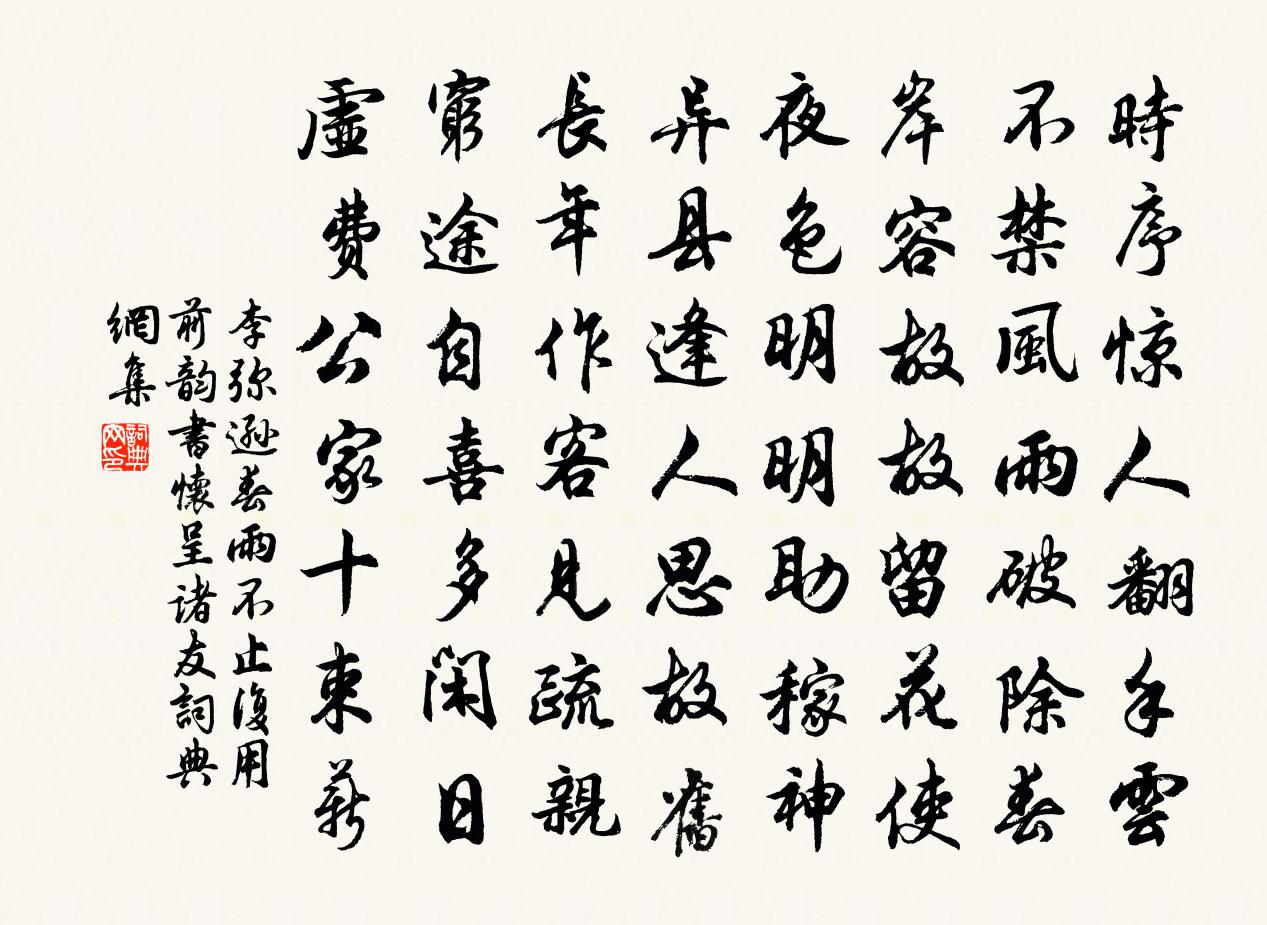 時序惊人翻手雲
不禁風雨破除春
岸容故故留花使
夜色明明助稼神
异县逢人思故舊
長年作客見疏親
窮途自喜多闲日
虛費公家十束薪
李弥遜春雨不止復用
前韵書懷呈诸友詞典
網集
詞典网印